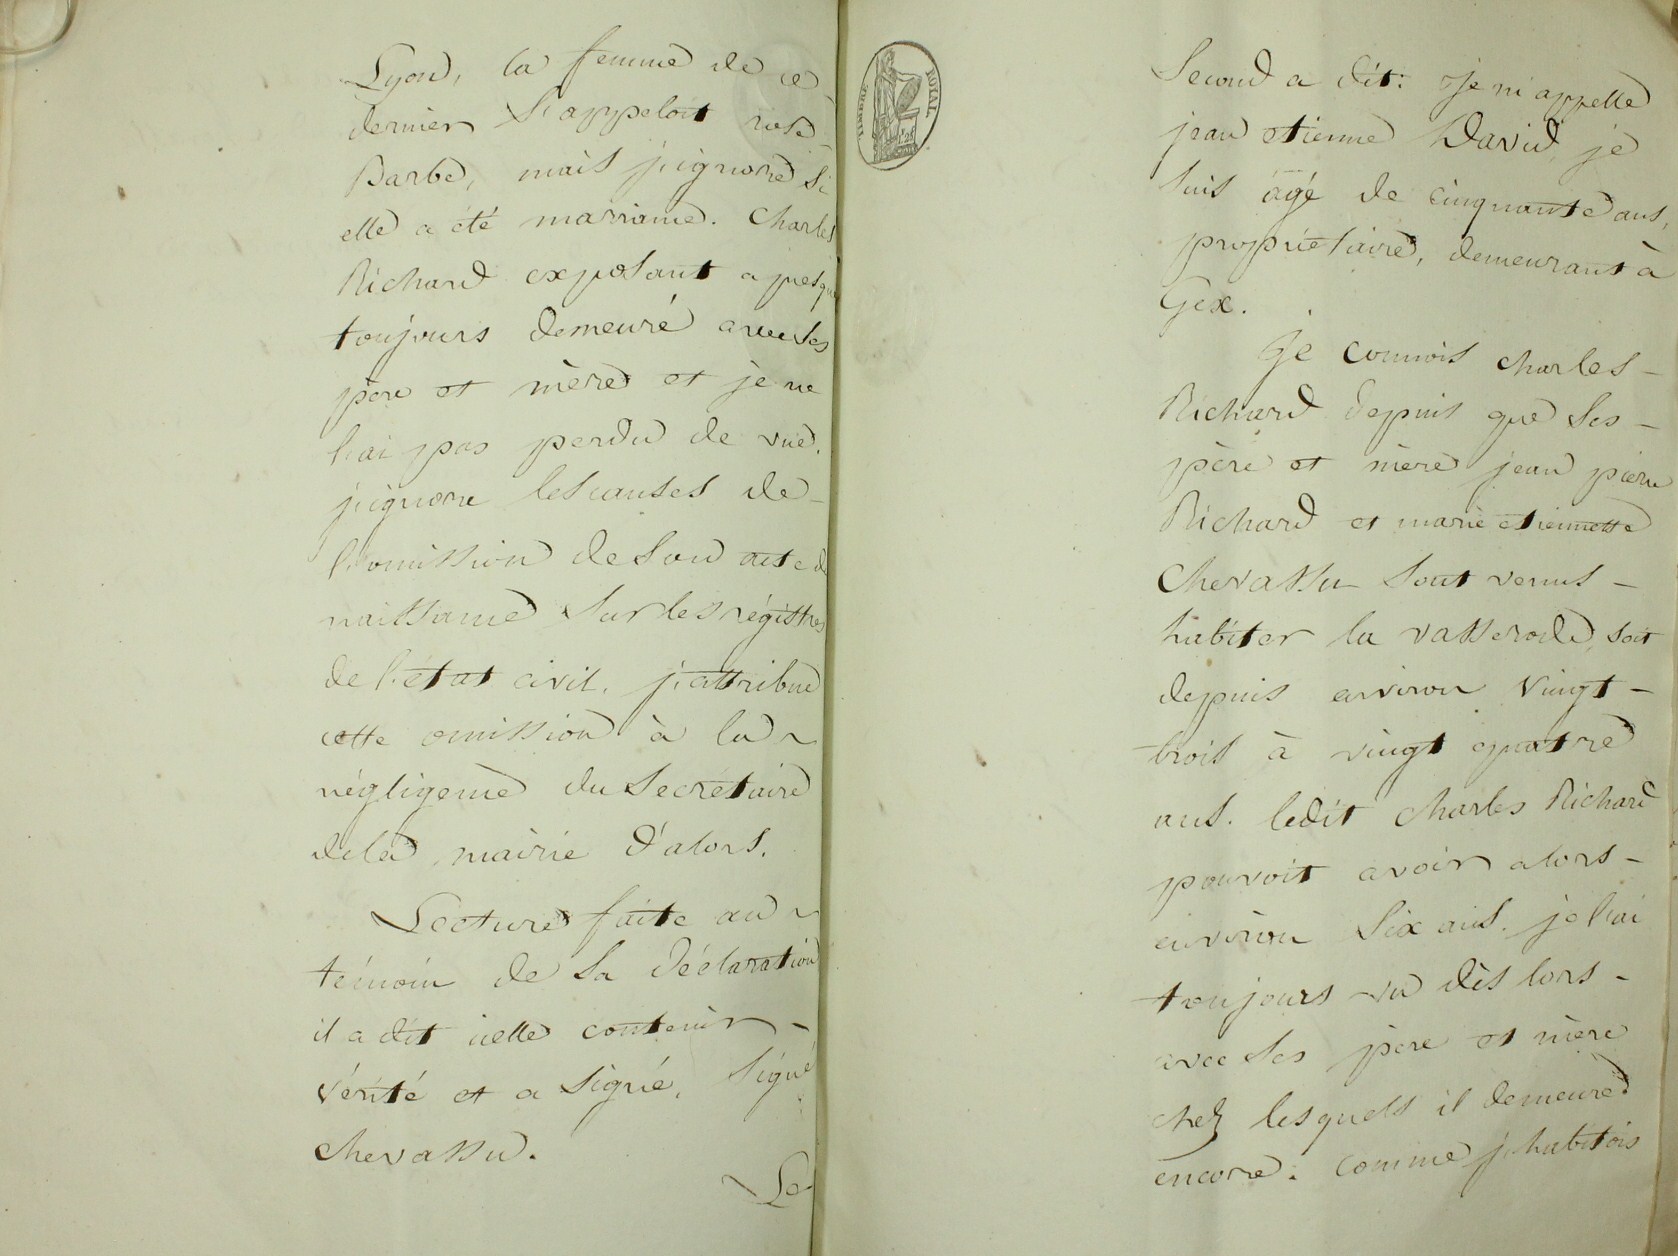 Lyon, la femme de ce
dernier s'appeloit rose
Barbe, mais j'ignore si
elle a été marraine. Charles
Richard exposant a presque
toujours demeuré avec ses
père et mère et je ne
l'ai pas perdu de vue.
j'ignore les causes de
l'omission de son acte de
naissance sur les régistres
de l'état civil. j'attribue
cette omission à la
négligence du Secrétaire
de la mairie d'alors.
Lecture faite au
témoin de sa déclaration
il a dit icelle contenir
vérité et a signé. signé
chevassu.
Le
TIMBRE ROYAL
Second a dit: Je m'appelle
jean etienne David, je
suis âgé de cinquante ans,
propriétaire, demeurant à
Gex.
Je connois charles
Richard depuis que ses
père et mère jean pierre
Richard et marie etiennette
Chevassu sont venus
habiter la vasserode, soit
depuis environ vingt
trois à vingt quatre
ans. ledit Charles Richard
pouvoit avoir alors
environ six ans. je l'ai
toujours vu dès lors
avec ses père et mère
chez lesquels il demeure
encore. comme j'habitois